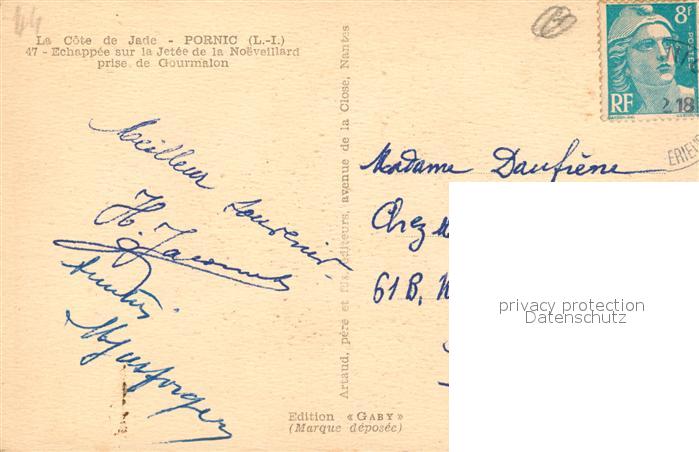 44
La Côte de Jade - PORNIC (L.-I.)
47 - Echappée sur la Jetée de la Noëveillard
prise de Gourmalon
Meilleur souvenir
Artaud, père et fils, éditeurs, avenue de la Close, Nantes
8F
POSTES
RF
218
Madame Daufrène
Chez M
61 B,
privacy protection
Datenschutz
Edition « GABY »
(Marque déposée)